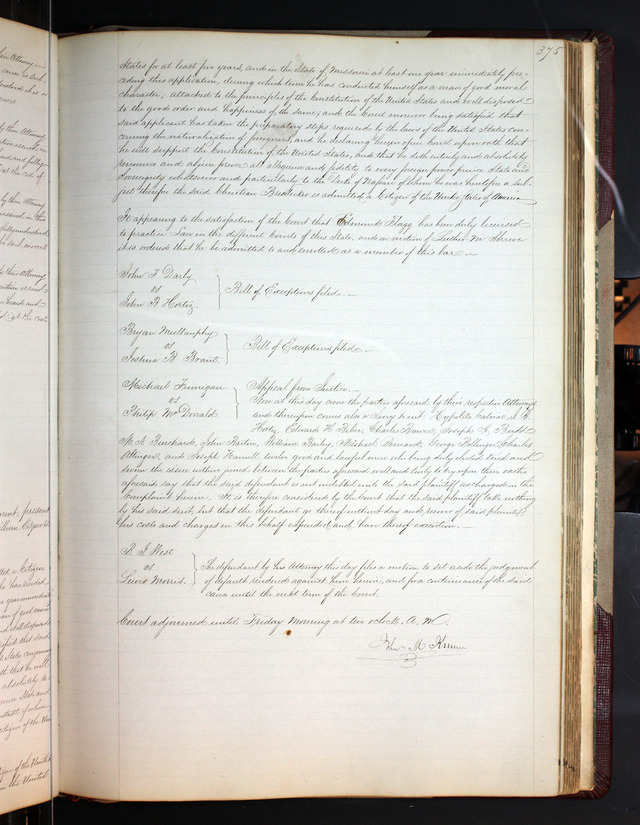 375
States for at least five years, and in the State of Missouri at least one year immediately pre-
ceding this application, during which time he has conducted himself as a man of good moral
character, attached to the principles of the Constitution of the United States and well disposed
to the good order and happiness of the same; and the Court moreover being satisfied that
said applicant has taken the preparatory steps required by the laws of the United States con-
cerning the naturalization of foreigners, and he declaring here in open Court upon oath that
he will support the Constitution of the United States, and that he doth entirely and absolutely
renounce and abjure forever all allegiance and fidelity to every foreign prince power State and
Sovereignty whatsoever and particularly to the Duke of Nassau of whom he was heretofore a sub-
ject therefore the said Christian is admitted a Citizen of the United States of America
It appearing to the satisfaction of the Court that Edmund Flagg has been duly licensed
to practice Law in the different Courts of this State, and on motion of Luther M Shreve
it is ordered that he be admitted to and enrolled as a member of this bar.
John F Darby
vs
John B Hortiz
Bill of Exceptions filed.
Bryan Mullanphy
vs
Joshua B Brant
Bill of Exceptions filed.
Michael Finnegan
vs
Philip McDonald
Appeal from Justice.
Now at this day come the parties aforesaid by their respective Attorneys
and thereupon comes also a Jury to wit.
Hortiz, Edward H. Charles Joseph A.
John Barton, William Bailey, Michael George Charles
and Joseph Hamill twelve good and lawful men who being duly elected tried and
sworn the issue within joined between the parties aforesaid well and truly to try upon their oaths
aforesaid say that the said defendant is not indebted unto the said plaintiff as charged in the
Complaint herein. It is therefore considered by the Court that the said plaintiff take nothing
by his said suit, but that the defendant go thereof without day and recover of said plaintiff
his costs and charges in this behalf expended, and have thereof execution.
West
vs
Lewis Morris.
The defendant by his Attorney this day files a motion to set aside the judgment
of default rendered against him herein, and for a continuance of the said
cause until the next term of the Court.
Court adjourned until Friday Morning at ten oclock. A.M.
John M Krum